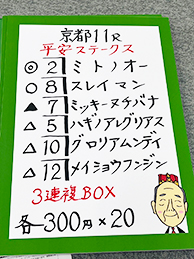 京都11R
平安ステークス
◎ 2 ミトノオー
○ 8 スレイマン
▲ 7 ミッキーヌチバナ
△ 5 ハギノアレグリアス
△ 10 グロリアムンディ
△ 12 メイショウフンジン
3連複BOX
各300円×20